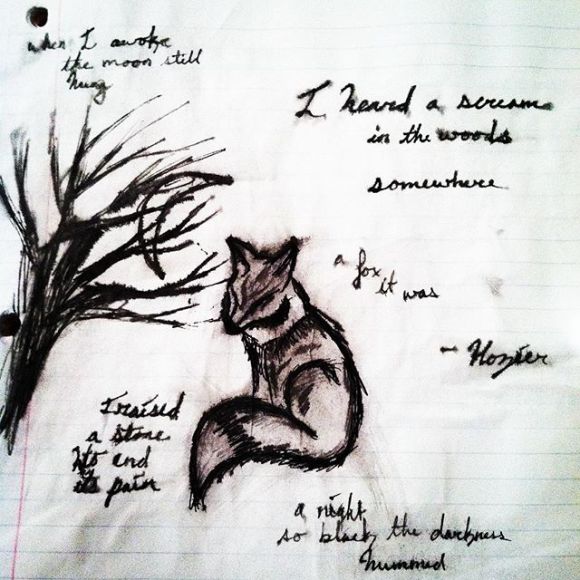 when I awoke
the moon still
hung
I heard a scream
in the woods
somewhere
a fox
it was
- Hozier
I raised
a stone
to end
its pain
a night
so black the darkness
hummed